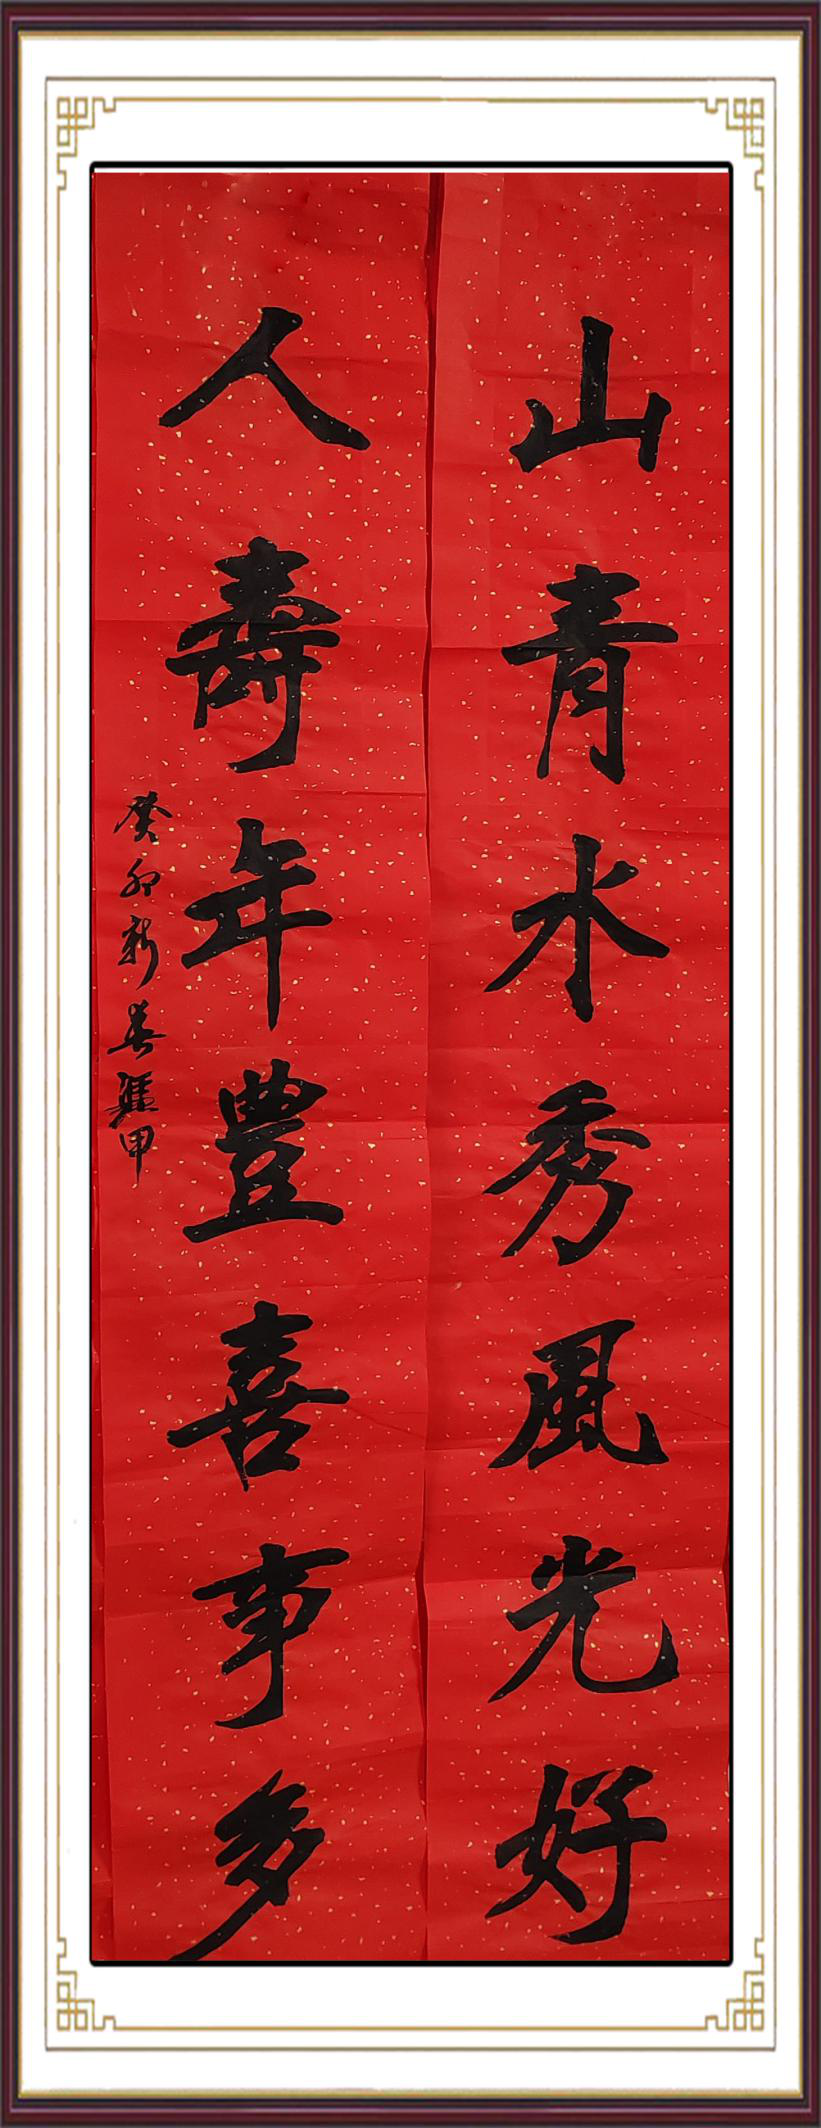 山青水秀風光好
人壽年豐喜事多
癸卯新春 甲